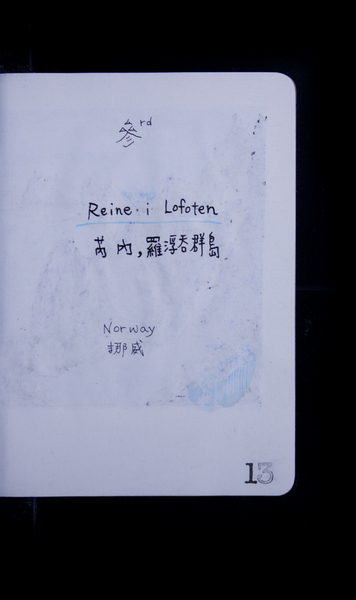 參rd
Reine. i Lofoten
芮內,羅浮吞群島
Norway
挪威
13